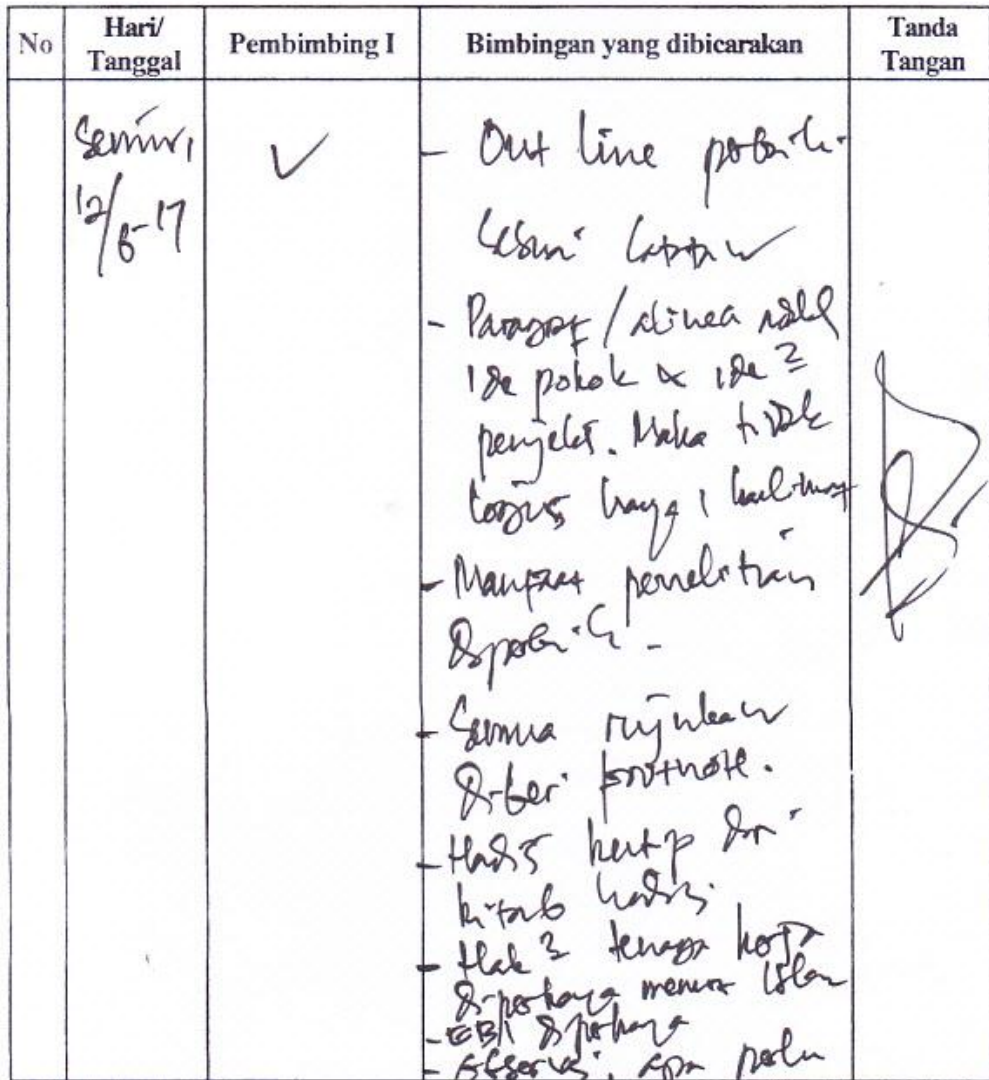 No Hari/ Tanggal Pembimbing I Bimbingan yang dibicarakan Tanda Tangan
Senin, ✓ - Out line perbaiki
12/6-17 sesuai
- Paragraf / alinea
ide pokok & ide2
penjelas. Maka tidak
hanya 1 kalimat
- Manfaat penelitian
diperbaiki -
- Semua rujukan
diberi footnote.
- Hadis kutip dari
kitab hadis
- Hak2 tenaga kerja
diperkaya menurut Islam
- EBI diperkaya
- apa perlu